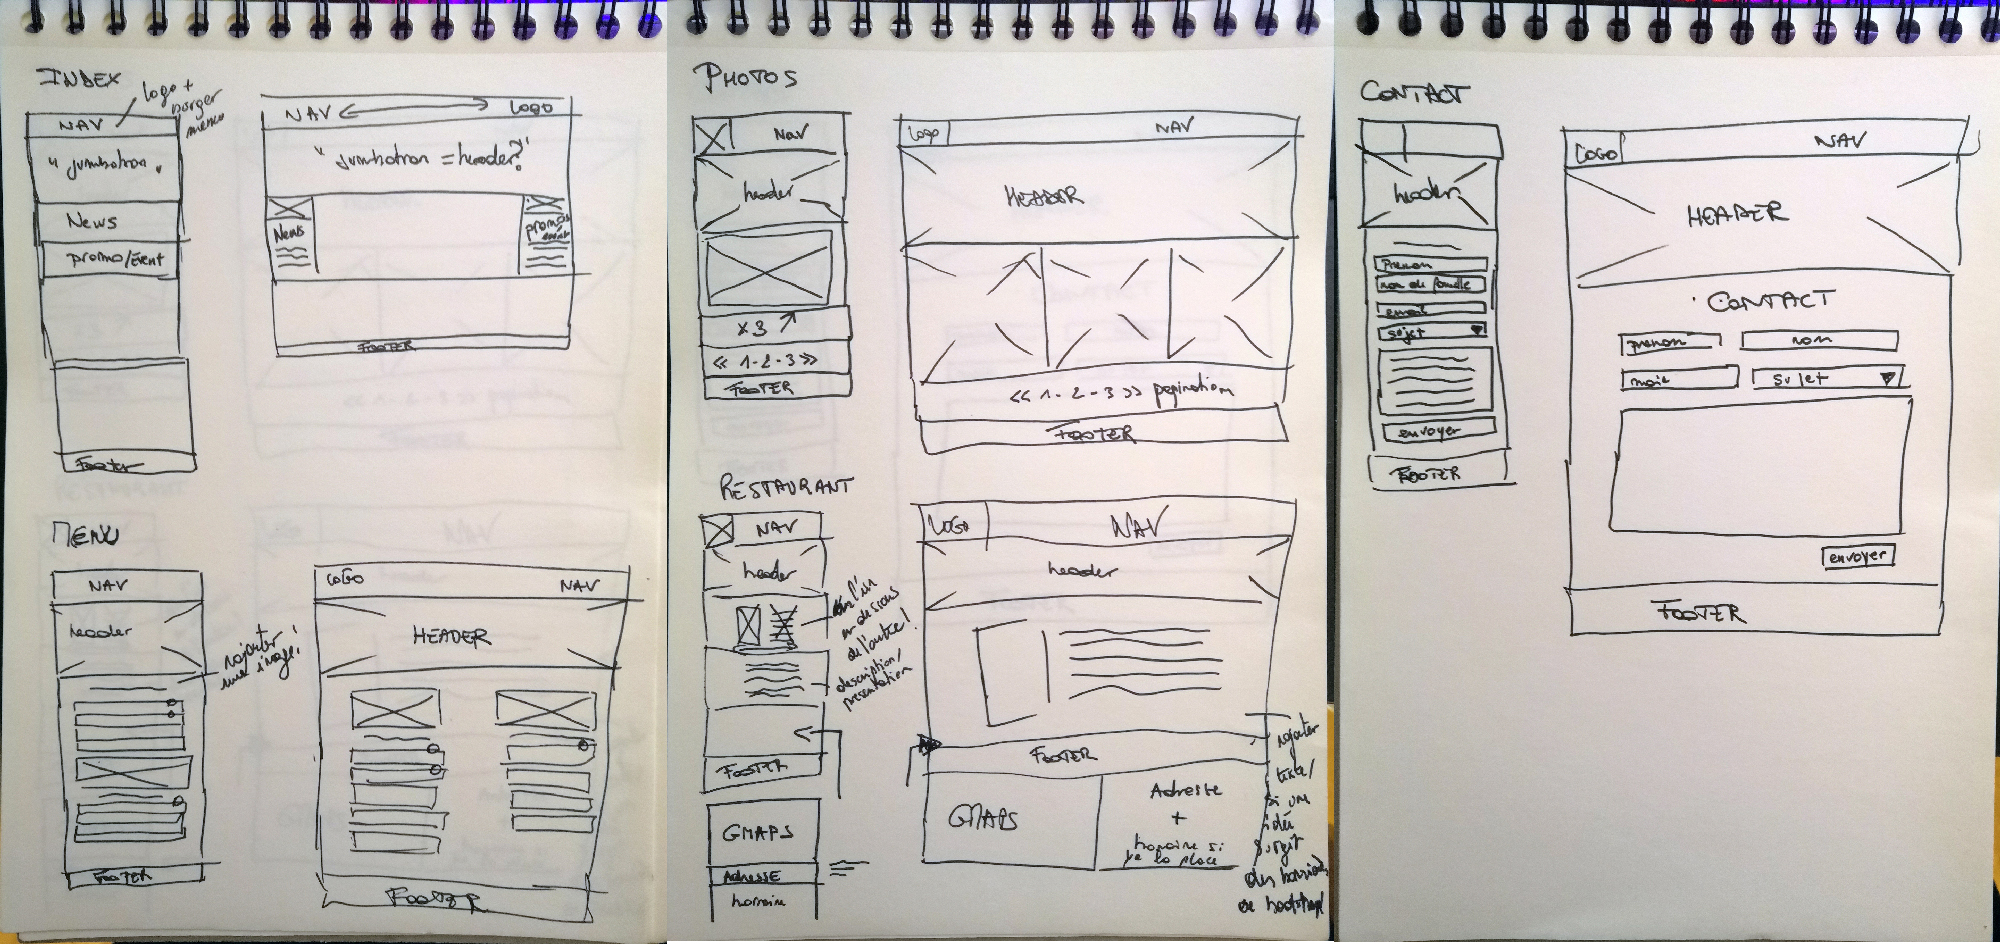 INDEX
Logo +
burger
menu
NAV
"Jumbotron"
News
promo/Event
Footer
NAV
LOGO
"Jumbotron = header?"
News
promos
event
FOOTER
MENU
NAV
header
rajouter
une image!
FOOTER
LOGO
NAV
HEADER
FOOTER
PHOTOS
Nav
header
x3
<< 1-2-3 >>
FOOTER
Logo
NAV
HEADER
<< 1-2-3 >> pagination
FOOTER
RESTAURANT
NAV
header
l'un
en dessous
de l'autre!
description/
présentation
FOOTER
GMAPS
ADRESSE
horraire
LOGO
NAV
header
FOOTER
GMAPS
Adresse
+
horraire si
la place
rajouter
texte/
si un
idée
surgit
des horriaires
de bootstrap
CONTACT
header
Prenom
nom de famille
email
sujet
envoyer
FOOTER
LOGO
NAV
HEADER
CONTACT
prenom
nom
mail
sujet
envoyer
FOOTER